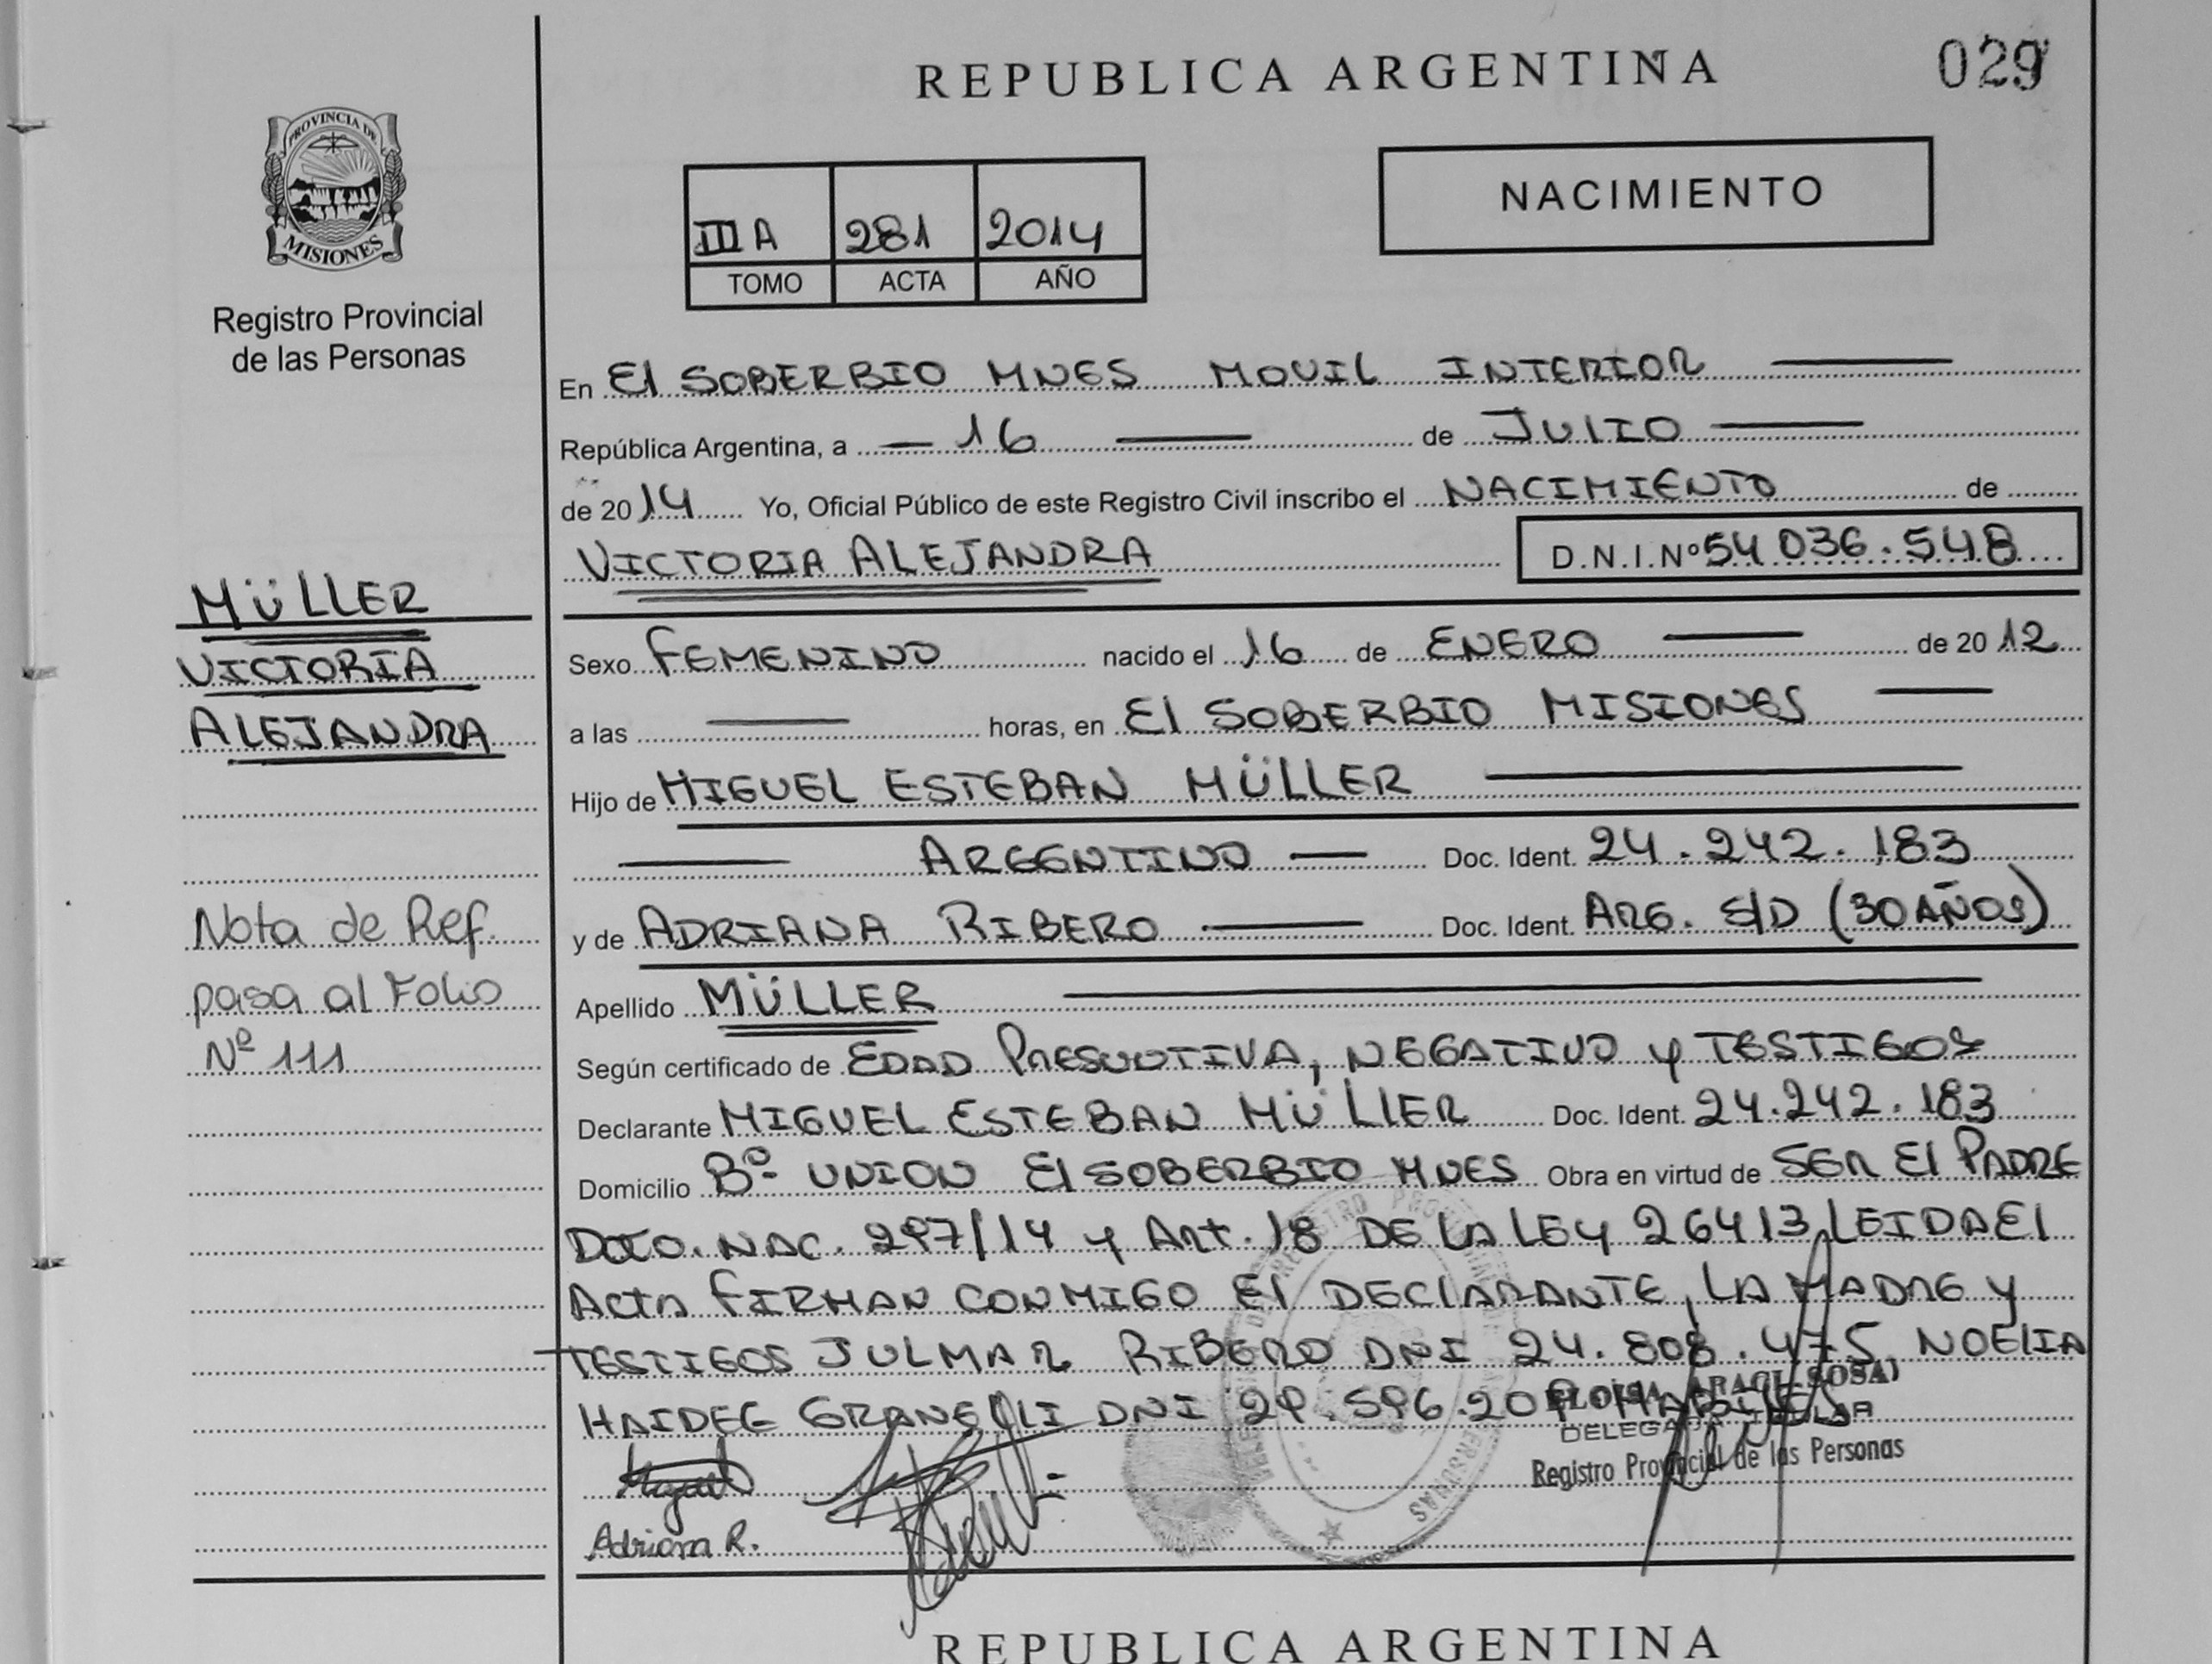 REPUBLICA ARGENTINA
029
PROVINCIA DE
MISIONES
Registro Provincial
de las Personas
NACIMIENTO
III A 281 2014
TOMO ACTA AÑO
En El SOBERBIO MNES MOVIL INTERIOR
República Argentina, a 16 de JULIO
de 2014 Yo, Oficial Público de este Registro Civil inscribo el NACIMIENTO de
VICTORIA ALEJANDRA D.N.I.Nº 54 036.548
MÜLLER
VICTORIA
ALEJANDRA
Nota de Ref.
pasa al Folio
Nº 111
Sexo FEMENINO nacido el 16 de ENERO de 2012
a las horas, en El SOBERBIO MISIONES
Hijo de MIGUEL ESTEBAN MÜLLER
ARGENTINO Doc. Ident. 24.242.183
y de ADRIANA RIBERO Doc. Ident. ARG. S/D (30 AÑOS)
Apellido MÜLLER
Según certificado de EDAD PRESUNTIVA, NEGATIVO y TESTIGOS
Declarante MIGUEL ESTEBAN MÜLLER Doc. Ident. 24.242.183
Domicilio Bº UNION El SOBERBIO MNES Obra en virtud de SER El PADRE
NAC. 297/14 y Art. 18 DE LA LEY 26413, LEIDA El
Acta FIRMAN CONMIGO El DECLARANTE, LA MADRE y
TESTIGOS JULMAR RIBERO DNI 24.808.475 NOELIA
HAIDEE DNI 29.596.20
ELOISA ARACI SOSA
DELEGADA TITULAR
Registro Provincial de las Personas
Adriana R.
REPUBLICA ARGENTINA